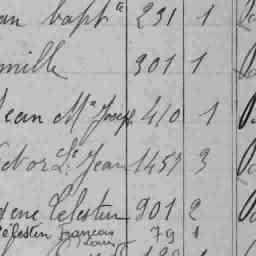 an bapt^te 231 1
mille 301 1
Jean M^ie Joseph 410 1
ctor L^s Jean 1459 3
gene Celestin 901 2
Célestin François 79 1
Louis